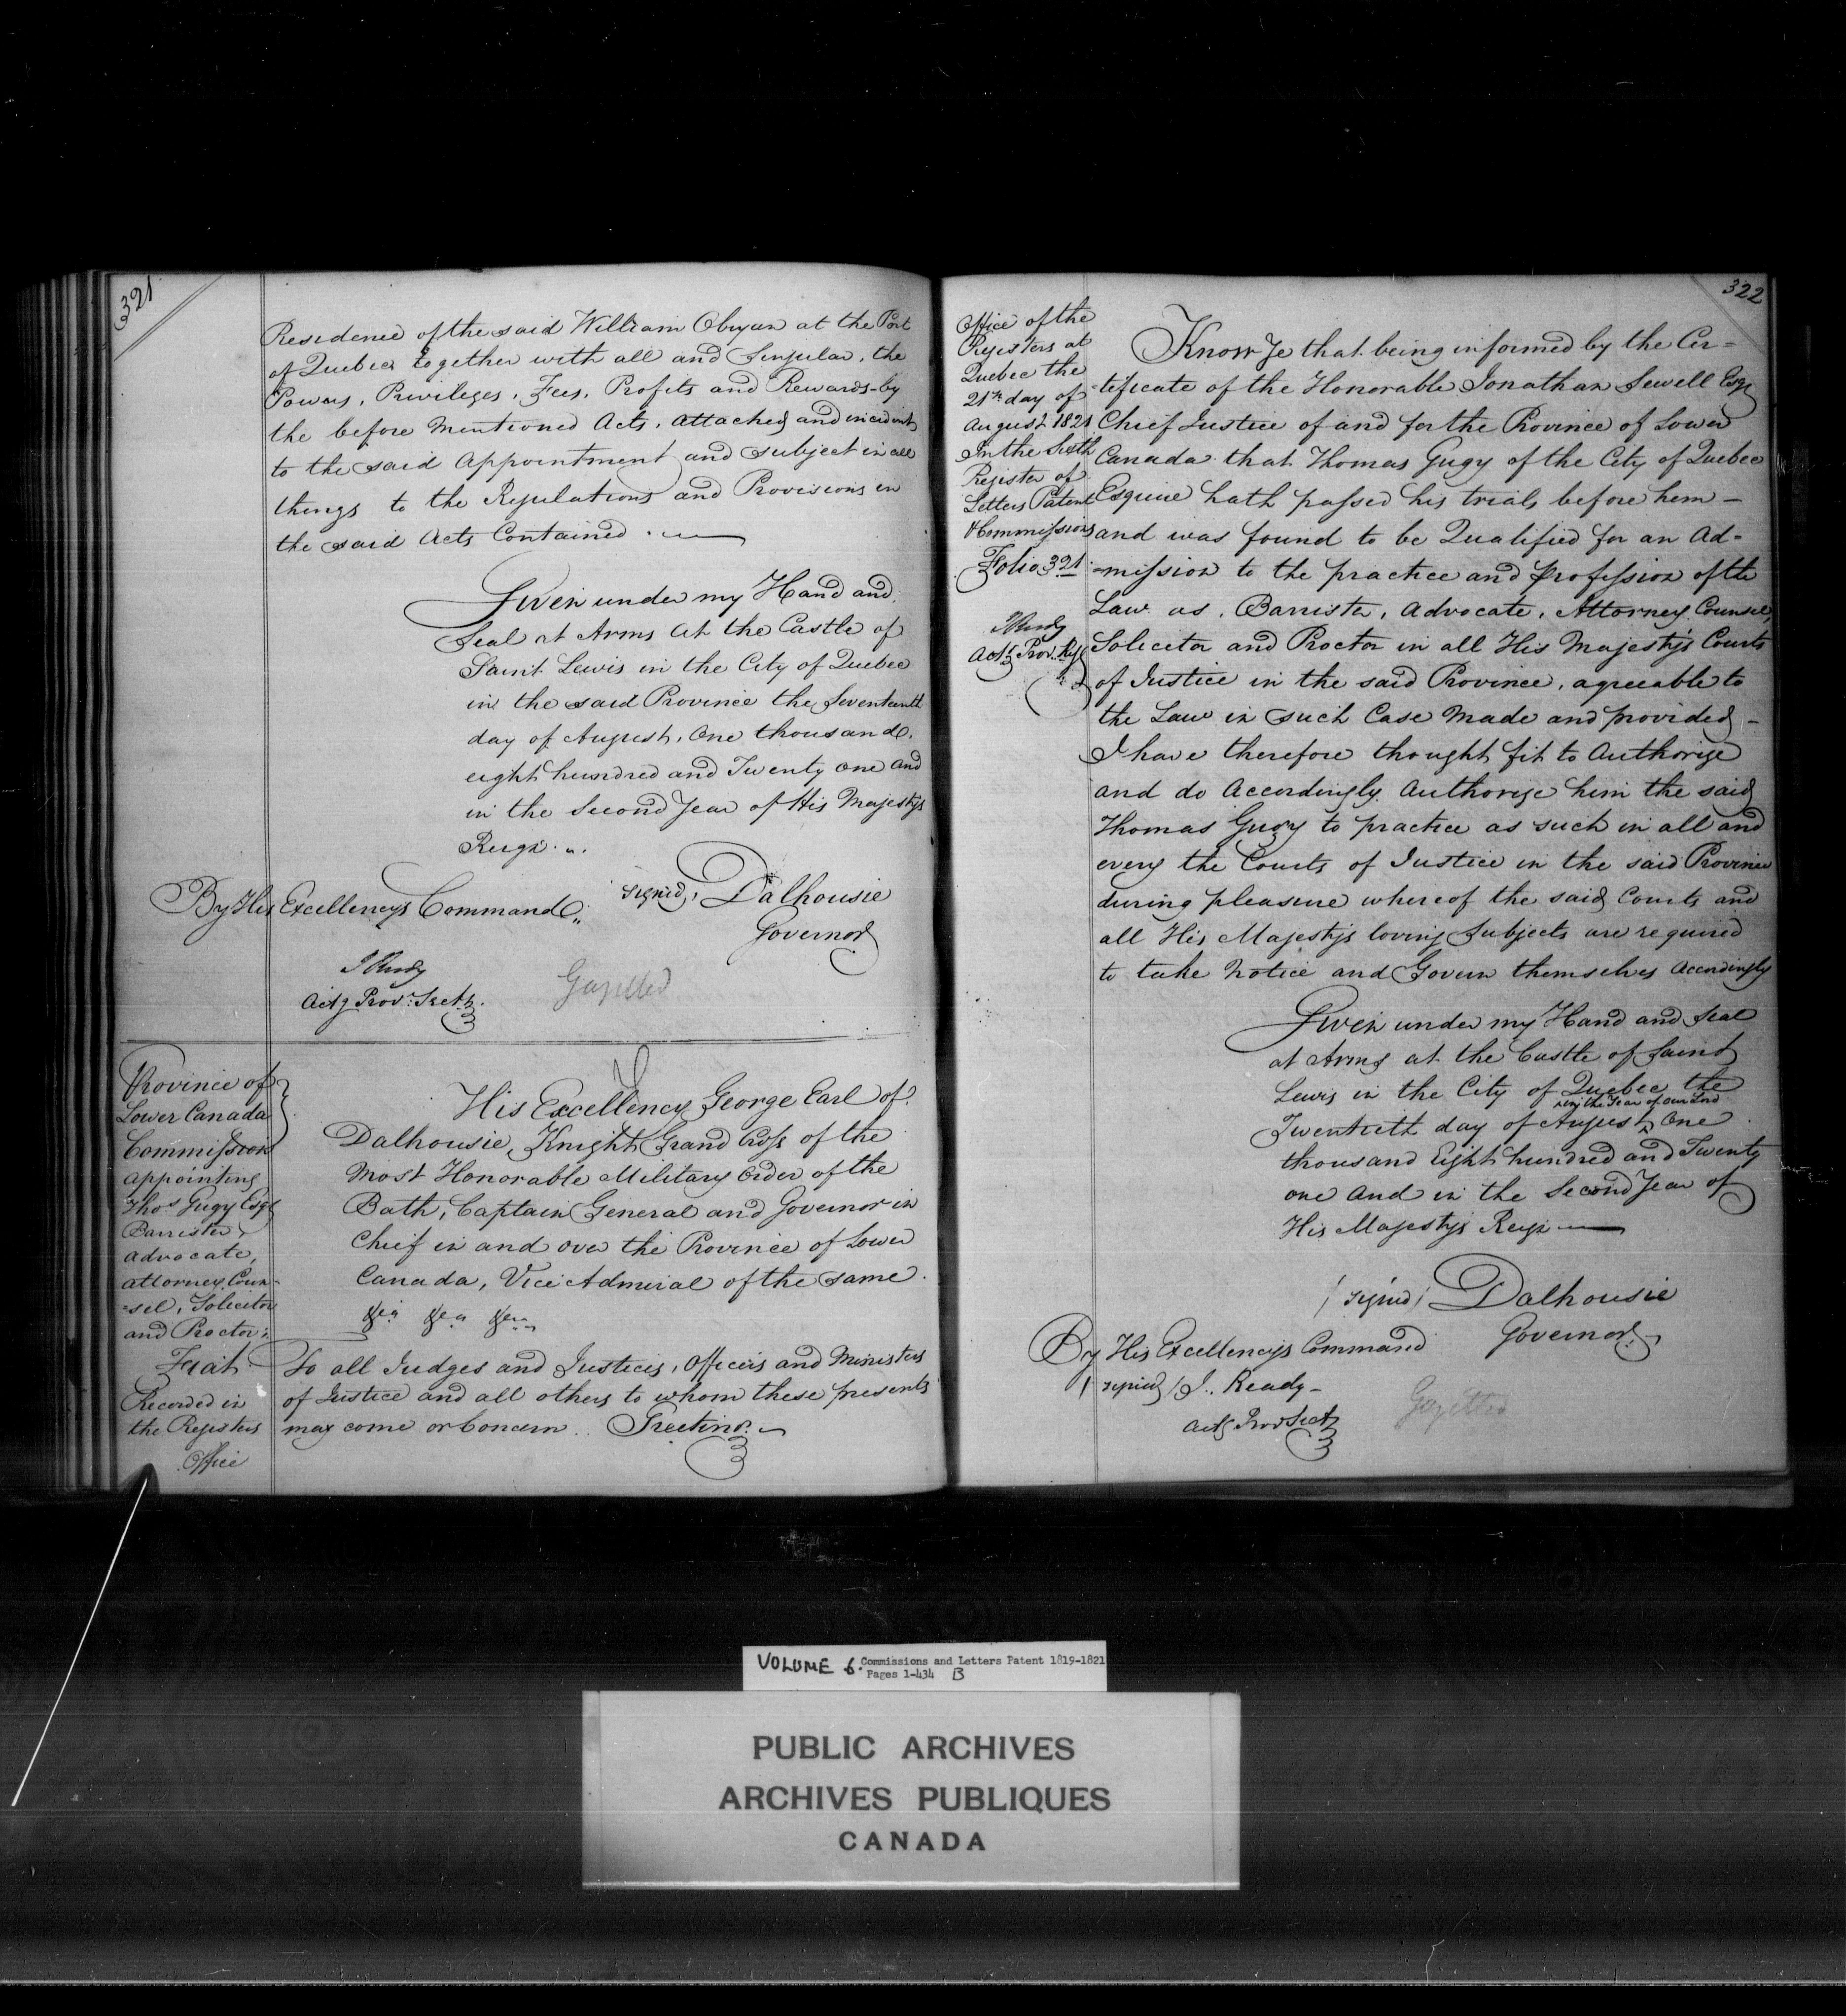 321
Residence of the said William Obryan at the Port
of Quebec together with all and Singular, the
Powers, Privileges, Fees, Profits and Rewards by
the before Mentioned Acts, attached and incident
to the said Appointment and subject in all
things to the Regulations and Provisions in
the said Acts Contained.
Given under my Hand and
Seal at Arms at the Castle of
Saint Lewis in the City of Quebec
in the said Province the Seventeenth
day of August, One thousand,
eight hundred and Twenty one and
in the Second Year of His Majestys
Reign.
signed, Dalhousie
Governor
By His Excellencys Command
J Ready
Actg Prov: Secty.
Gazetted
Province of
Lower Canada
Commission
appointing
Thos Gugy Esqr
Barrister,
Advocate,
Attorney, Coun-
=sel, Solicitor
and Proctor:
Fiat.
Recorded in
the Registers
Office
His Excellency George Earl of
Dalhousie, Knight Grand Cross of the
Most Honorable Military Order of the
Bath, Captain General and Governor in
Chief in and over the Province of Lower
Canada, Vice Admiral of the same.
&ca &ca &ca
To all Judges and Justices, Officers and Ministers
of Justice and all others to whom these presents
may come or Concern. Greeting.
322
Office of the
Registers at
Quebec the
21st day of
August 1821
In the Sixth
Register of
Letters Patent
& Commissions
Folio 321
J Ready
Actg Prov. Regr
Know Ye that being informed by the Cer=
=tificate of the Honorable Jonathan Sewell Esqr
Chief Justice of and for the Province of Lower
Canada that Thomas Gugy of the City of Quebec
Esquire hath passed his trials before hem -
and was found to be Qualified for an Ad=
=mission to the practice and profession of the
Law as, Barrister, Advocate, Attorney, Counsel,
Solicitor and Proctor in all His Majestys Courts
of Justice in the said Province, agreeable to
the Law in such Case Made and provided -
I have therefore thought fit to Authorize
and do Accordingly Authorize him the said
Thomas Gugy to practice as such in all and
every the Courts of Justice in the said Province
during pleasure whereof the said Courts and
all His Majestys loving Subjects are required
to take Notice and Govern themselves Accordingly
Given under my Hand and Seal
at Arms at the Castle of Saint
Lewis in the City of Quebec the
in the Year of our Lord
Twentieth day of August, One
thousand Eight hundred and Twenty
one And in the Second Year of
His Majestys Reign
/signed/ Dalhousie
Governor
By His Excellencys Command
/signed/ J. Ready -
Actg Prov Secty
Gazetted
VOLUME 6. Commissions and Letters Patent 1819-1821
Pages 1-434 B
PUBLIC ARCHIVES
ARCHIVES PUBLIQUES
CANADA